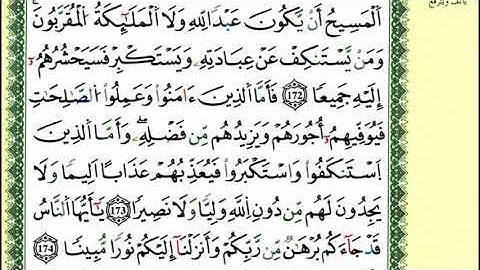 يأنف ويترفع
ٱلْمَسِيحُ أَن يَكُونَ عَبْدًا لِّلَّهِ وَلَا ٱلْمَلَٰٓئِكَةُ ٱلْمُقَرَّبُونَ
وَمَن يَسْتَنكِفْ عَنْ عِبَادَتِهِۦ وَيَسْتَكْبِرْ فَسَيَحْشُرُهُمْ
إِلَيْهِ جَمِيعًا ١٧٢ فَأَمَّا ٱلَّذِينَ ءَامَنُوا۟ وَعَمِلُوا۟ ٱلصَّٰلِحَٰتِ
فَيُوَفِّيهِمْ أُجُورَهُمْ وَيَزِيدُهُم مِّن فَضْلِهِۦ وَأَمَّا ٱلَّذِينَ
ٱسْتَنكَفُوا۟ وَٱسْتَكْبَرُوا۟ فَيُعَذِّبُهُمْ عَذَابًا أَلِيمًا وَلَا
يَجِدُونَ لَهُم مِّن دُونِ ٱللَّهِ وَلِيًّا وَلَا نَصِيرًا ١٧٣ يَٰٓأَيُّهَا ٱلنَّاسُ
قَدْ جَآءَكُم بُرْهَٰنٌ مِّن رَّبِّكُمْ وَأَنزَلْنَآ إِلَيْكُمْ نُورًا مُّبِينًا ١٧٤